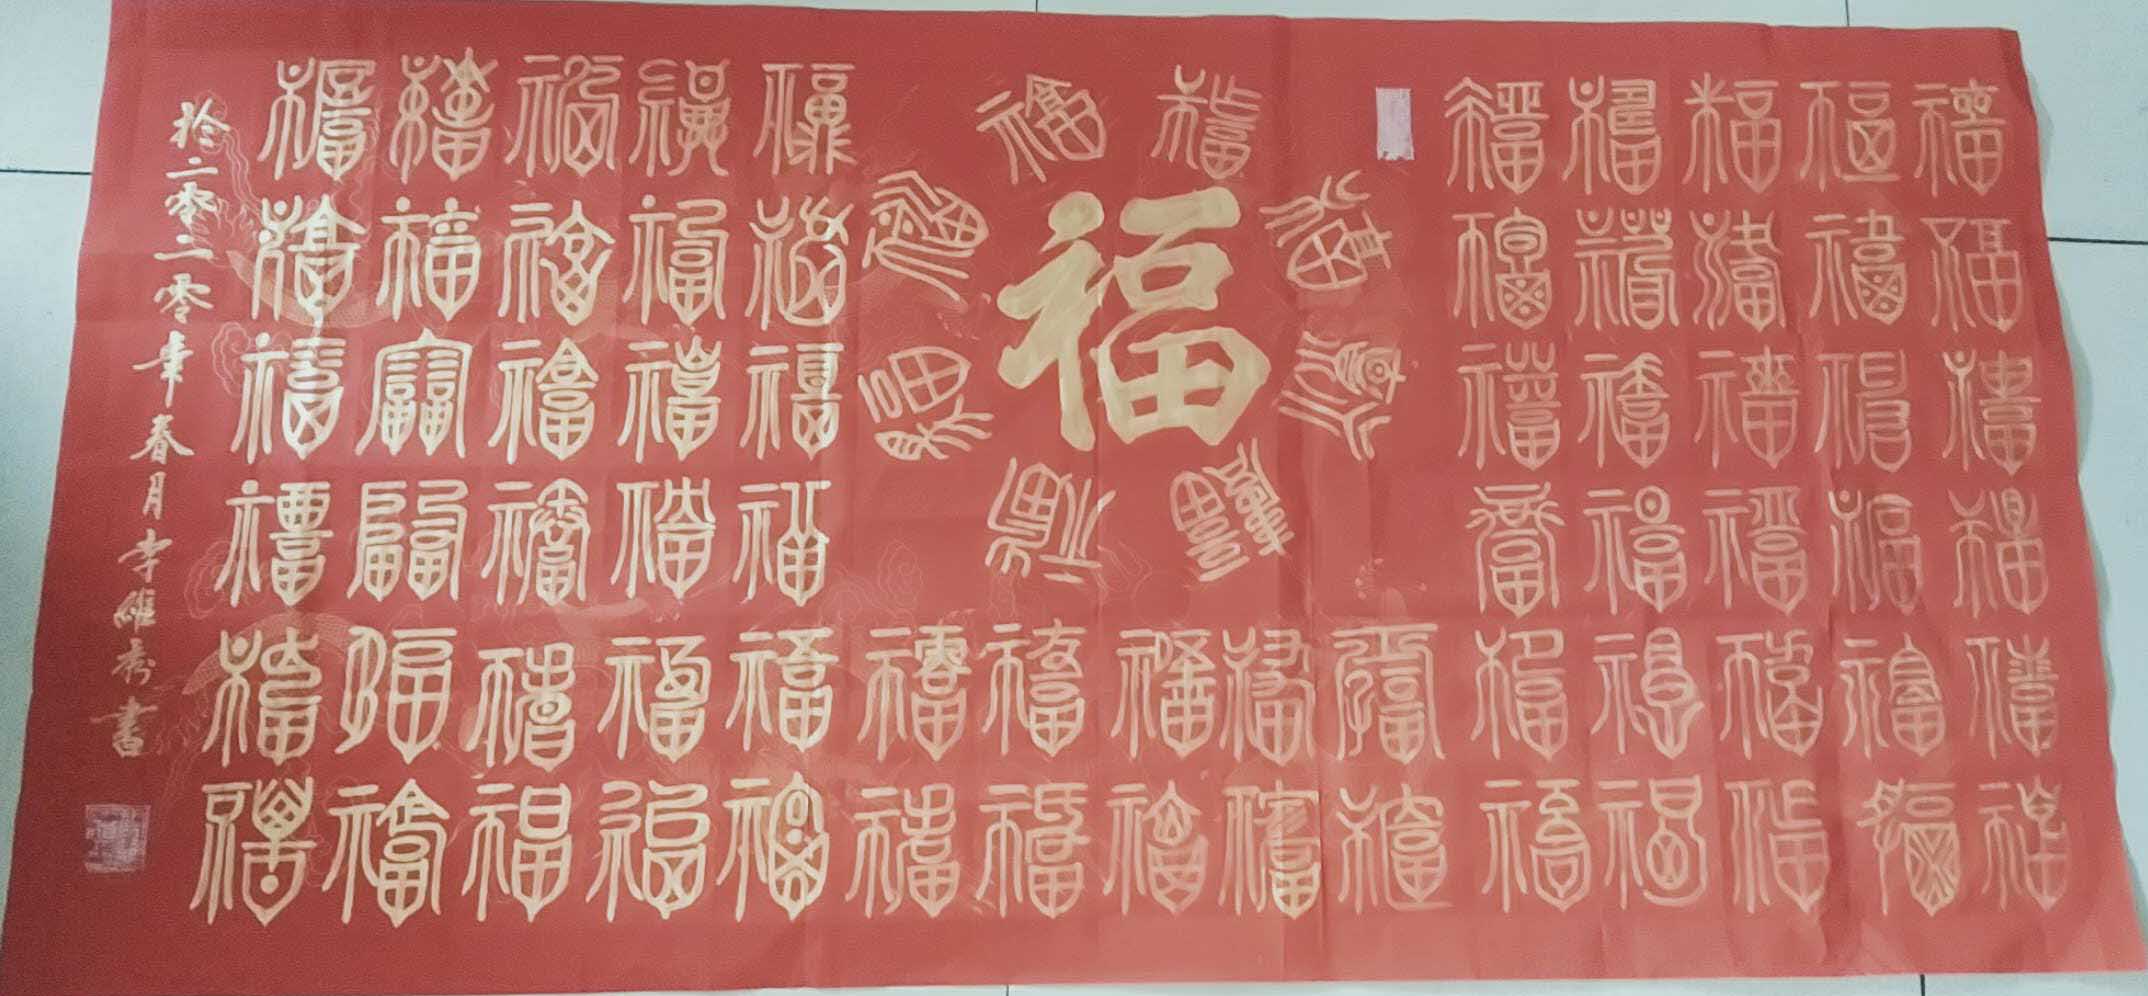 福福福福福福
福福福福福福
福福福福福福
福福福福福福
福福福福福福
福
福福福福福福福福
福福
福福
福福
福福
福福
福福福福福福
福福福福福福
福福福福福福
福福福福福福
福福福福福福
二零二零年春月李
書